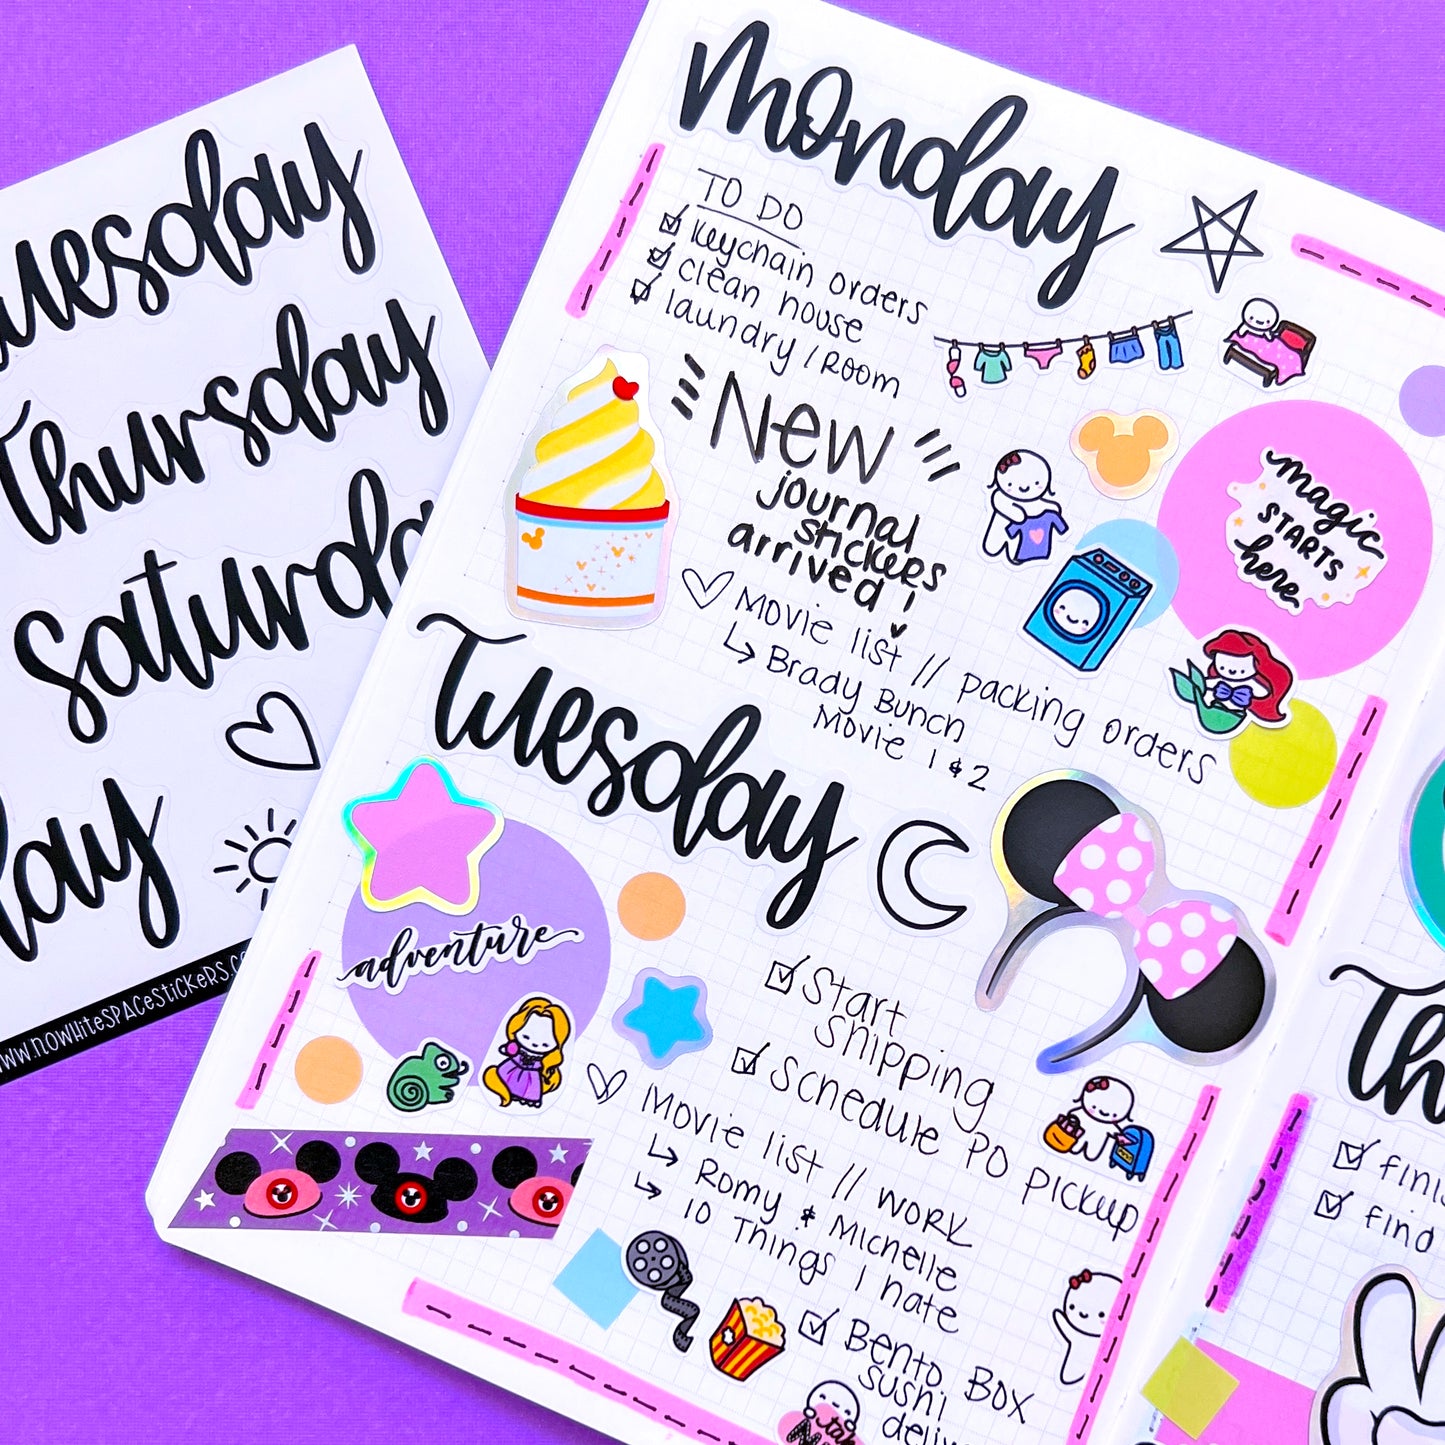 Tuesday
Thursday
Saturday
day
www.nowhitespacestickers.c
Monday
TO DO
keychain orders
clean house
laundry / Room
New
journal
stickers
arrived!
Movie list // packing orders
Brady Bunch
Movie 1 & 2
magic
STARTS
here
Tuesday
adventure
Start
Shipping
Schedule PO pickup
Movie list // work
Romy & Michelle
10 Things I hate
Bento Box
sushi
Th
find